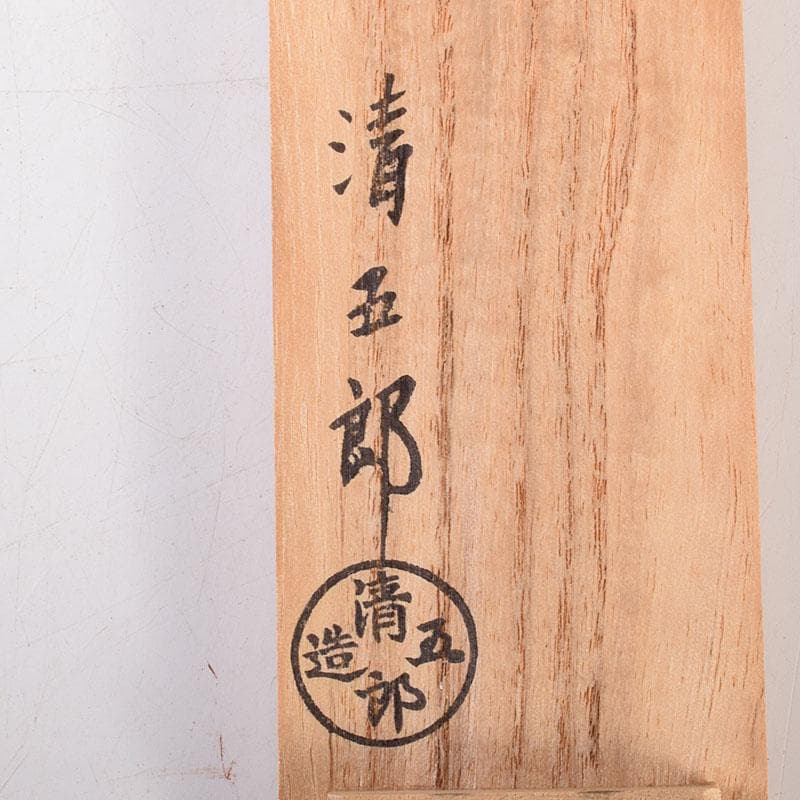 清五郎
清五郎造